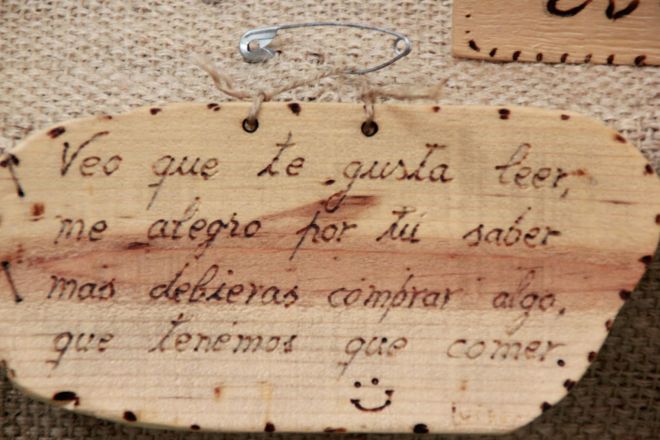 Veo que te gusta leer,
me alegro por tú saber
mas debieras comprar algo,
que tenémos que comer.